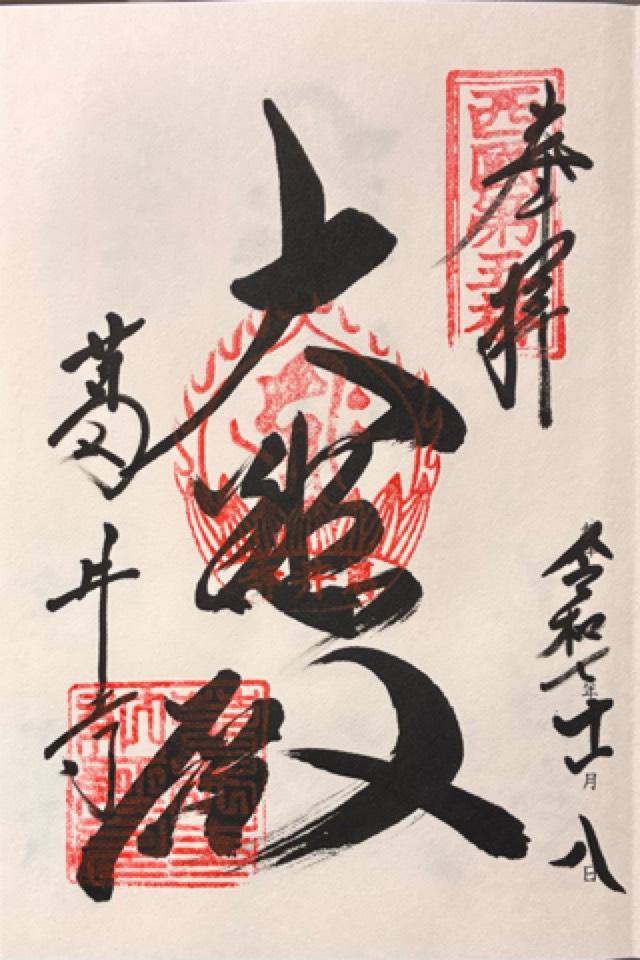 奉拝
西國第五番
大悲殿
葛井寺
令和七年十一月八日